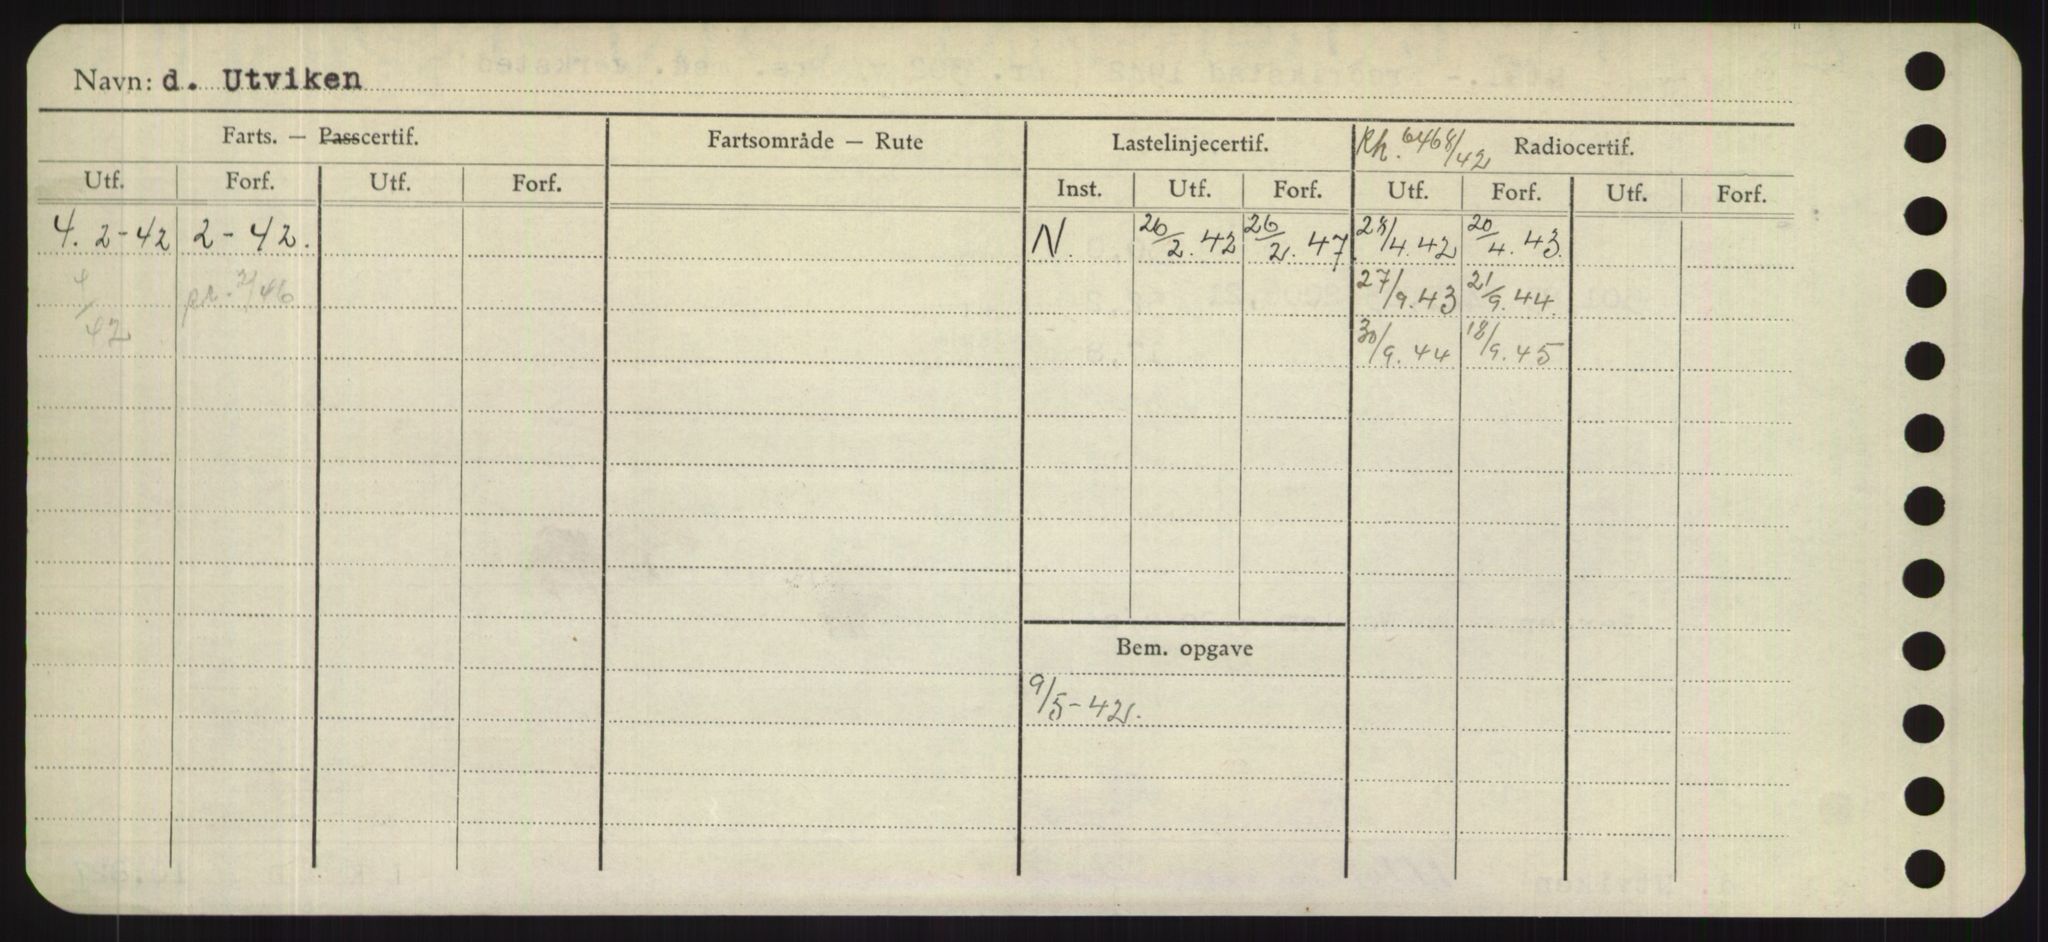 Navn: d. Utviken
Farts. — Passcertif. Fartsområde — Rute Lastelinjecertif. Rk. 6468/42 Radiocertif.
Utf. Forf. Utf. Forf. Inst. Utf. Forf. Utf. Forf. Utf. Forf.
4. 2-42 2-42. N. 26/2. 42 26/2. 47 28/4. 42 20/4. 43.
27/9. 43 21/9. 44
42 30/9. 44 18/9. 45
Bem. opgave
9/5-42.